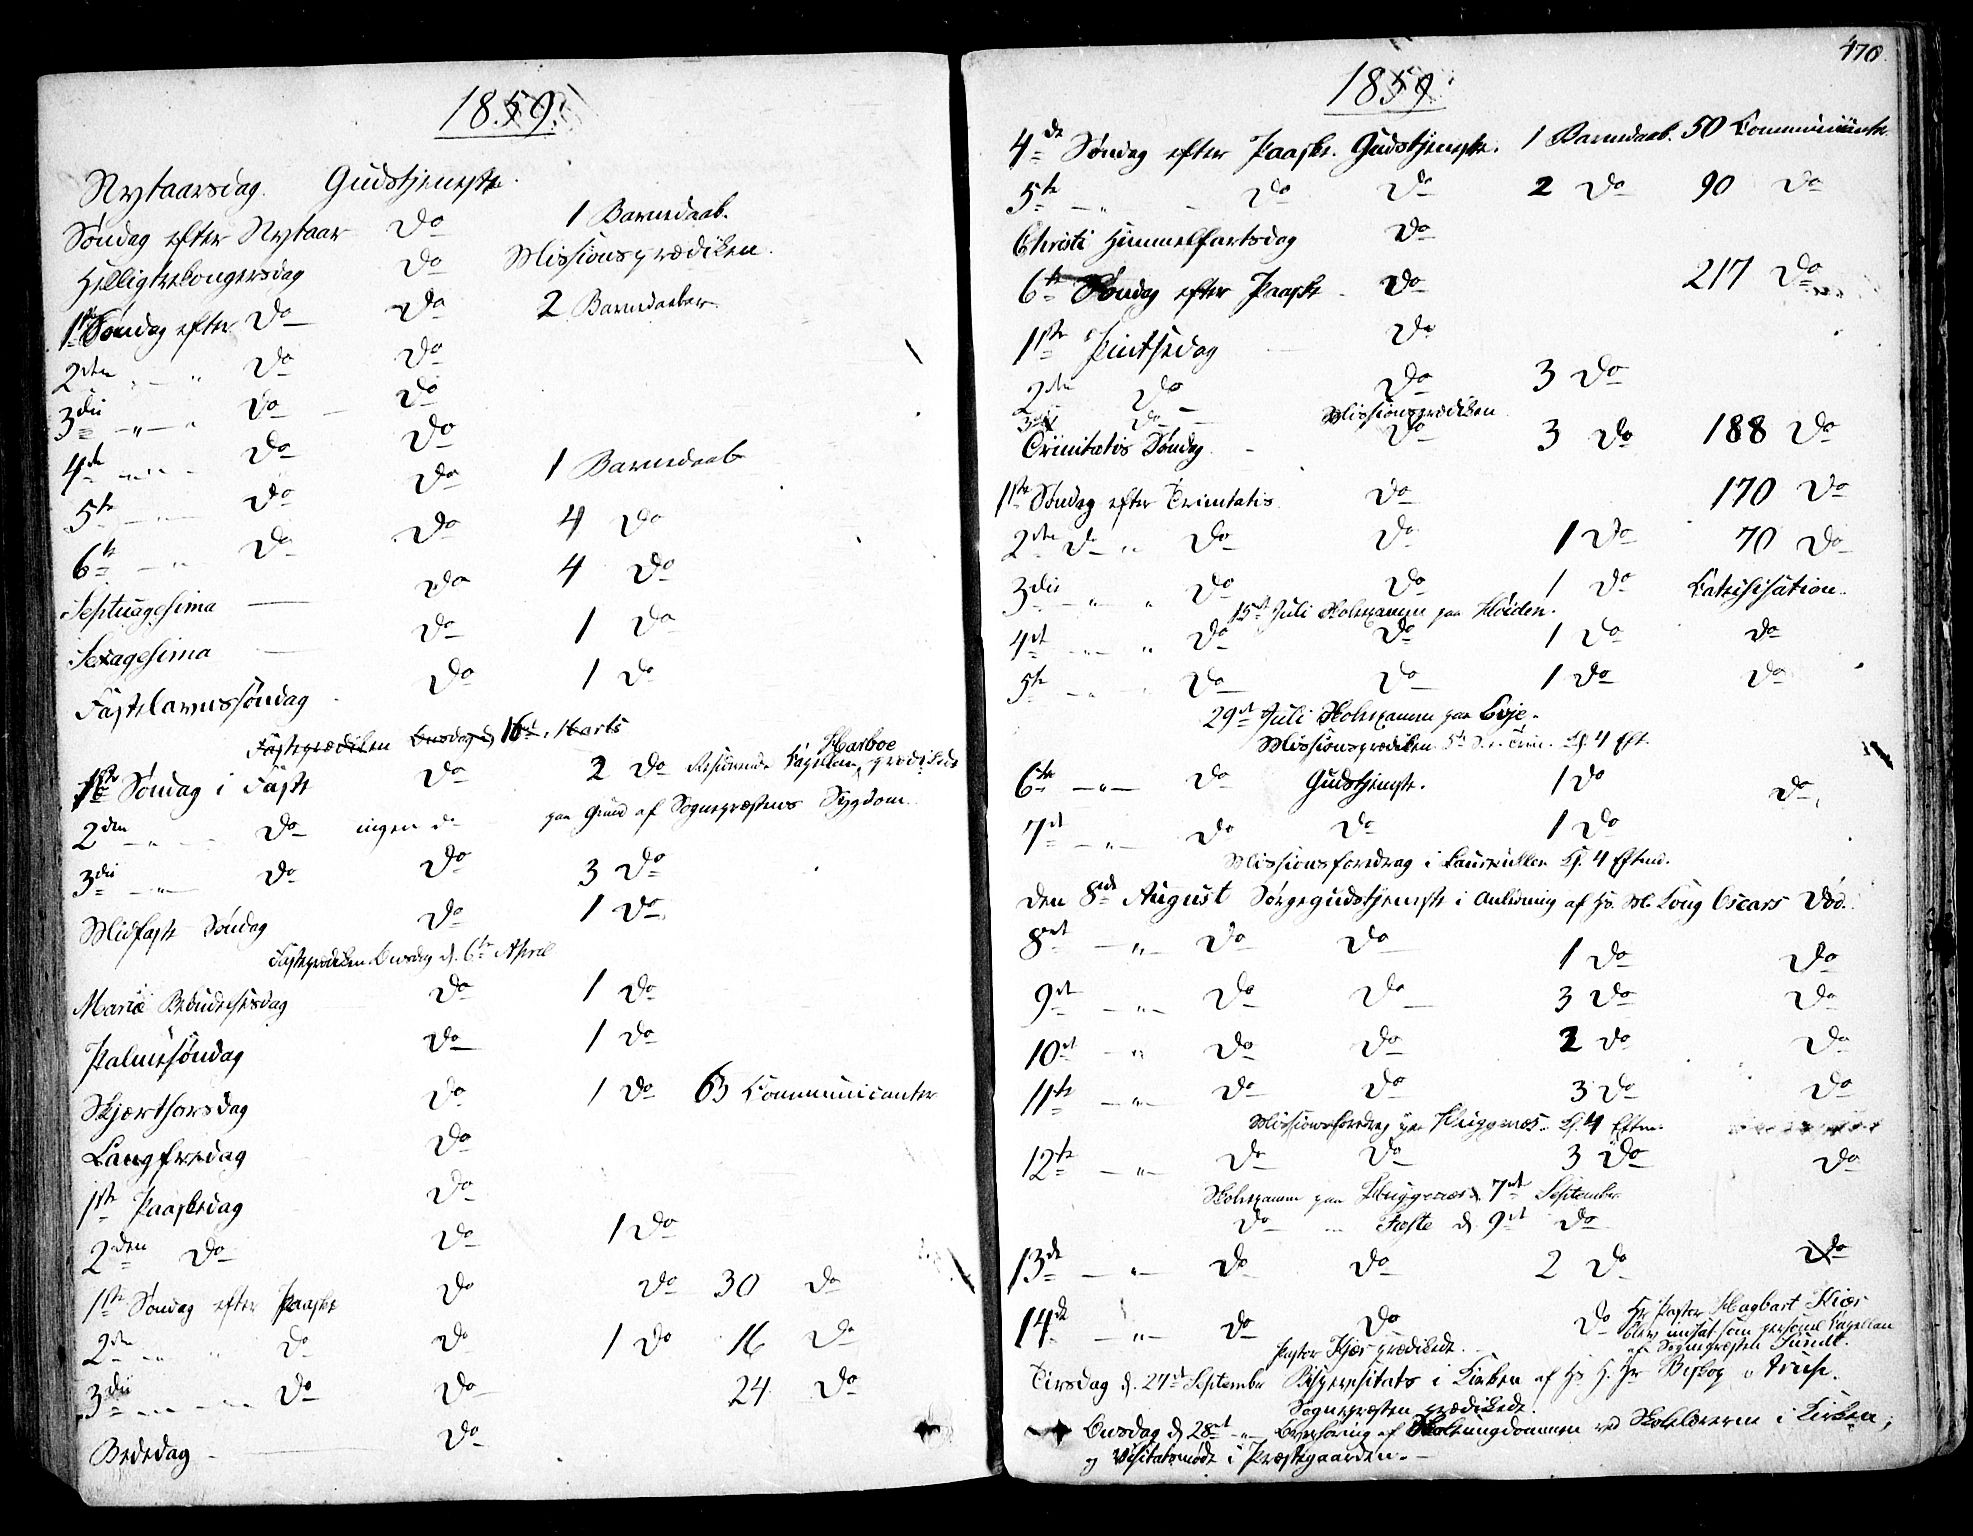 1859.
Nytaarsdag. Gudstjeneste.
Søndag efter Nytaar Do 1 Barnedaab.
Helligtrekongersdag Do Missionsprædiken.
1ste Søndag efter Do Do 2 Barnedaaber.
2den " Do Do
3die " Do Do
4de " Do Do
5te Do Do 1 Barnedaab
6te " Do Do 4 Do
Septuagesima Do 4 Do
Sexagesima Do 1 Do
Fastelavnssøndag Do 1 Do
Fasteprædiken Onsdag d 16de Marts
1ste Søndag i Faste Do 2 Do Residerende Capellan Harboe prædikede
2den " Do ingen do paa Grund af Sognepræstens Sygdom.
3die " Do Do 3 Do
Midfaste Søndag Do 1 Do
Fasteprædiken Onsdag d. 6te April
Mariæ Bebudelsesdag Do 1 Do
Palmesøndag Do 1 Do
Skjærthorsdag Do 1 Do 63 Communicanter
Langfredag Do
1ste Paaskedag Do
2den Do Do 1 Do
1ste Søndag efter Paaske Do Do 30 Do
2den " Do Do 1 Do 16 Do
3die Do Do 24 Do
Bededag Do
470.
1859
4de Søndag efter Paaske. Gudstjeneste. 1 Barnedaab. 50 Communicanter
5te " Do Do 2 Do 90 Do
Christi Himmelfartsdag Do
6te Søndag efter Paaske Do 217 Do
1ste Pintsedag Do
2den Do Do 3 Do
3die Do Missionsprædiken
Trinitatis Søndag Do 3 Do 188 Do
1ste Søndag efter Trinitatis Do 170 Do
2den Do " Do Do 1 Do 70 Do
3die " " Do Do 1 Do Catechisation.
15de Juli Skoleexamen paa Halden.
4de " Do Do 1 Do Do
5te " Do Do 1 Do Do
29de Juli Skoleexamen paa Evje.
Missionsprædiken 5te S. e. Trin. Kl. 4 Eft.
6te " Do Gudstjeneste. 1 Do Do
7de " Do Do 1 Do
Missionsforedrag i Kl. 4 Efterm.
den 8de August Sørgegudstjeneste i Anledning af Hs. M. Kong Oscars Død.
8de " Do Do 1 Do Do
9de " Do Do 3 Do Do
10de " Do Do 2 Do Do
11te " Do Do 3 Do Do
Missionsforedrag paa Huggenæs. Kl. 4 Efterm.
12te " Do Do 3 Do Do
Skoleexamen paa Huggenæs d. 7de September
Do " Faste d. 9de Do
13de " Do Do 2 Do Do
14de " Do Do Do Hr Pastor Hagbart Kiær
blev indsat som personel Capellan
af Sognepræsten Sundt.
Pastor Kjær prædikede.
Tirsdag d. 27de September Bispevisitats i Kirken af Hs H. Hr Biskop Arup.
Sognepræsten prædikede.
Onsdag d 28de " Overhøring af Skoleungdommen ved Skolelærerne i Kirken,
og Visitatsmøde i Præstegaarden.